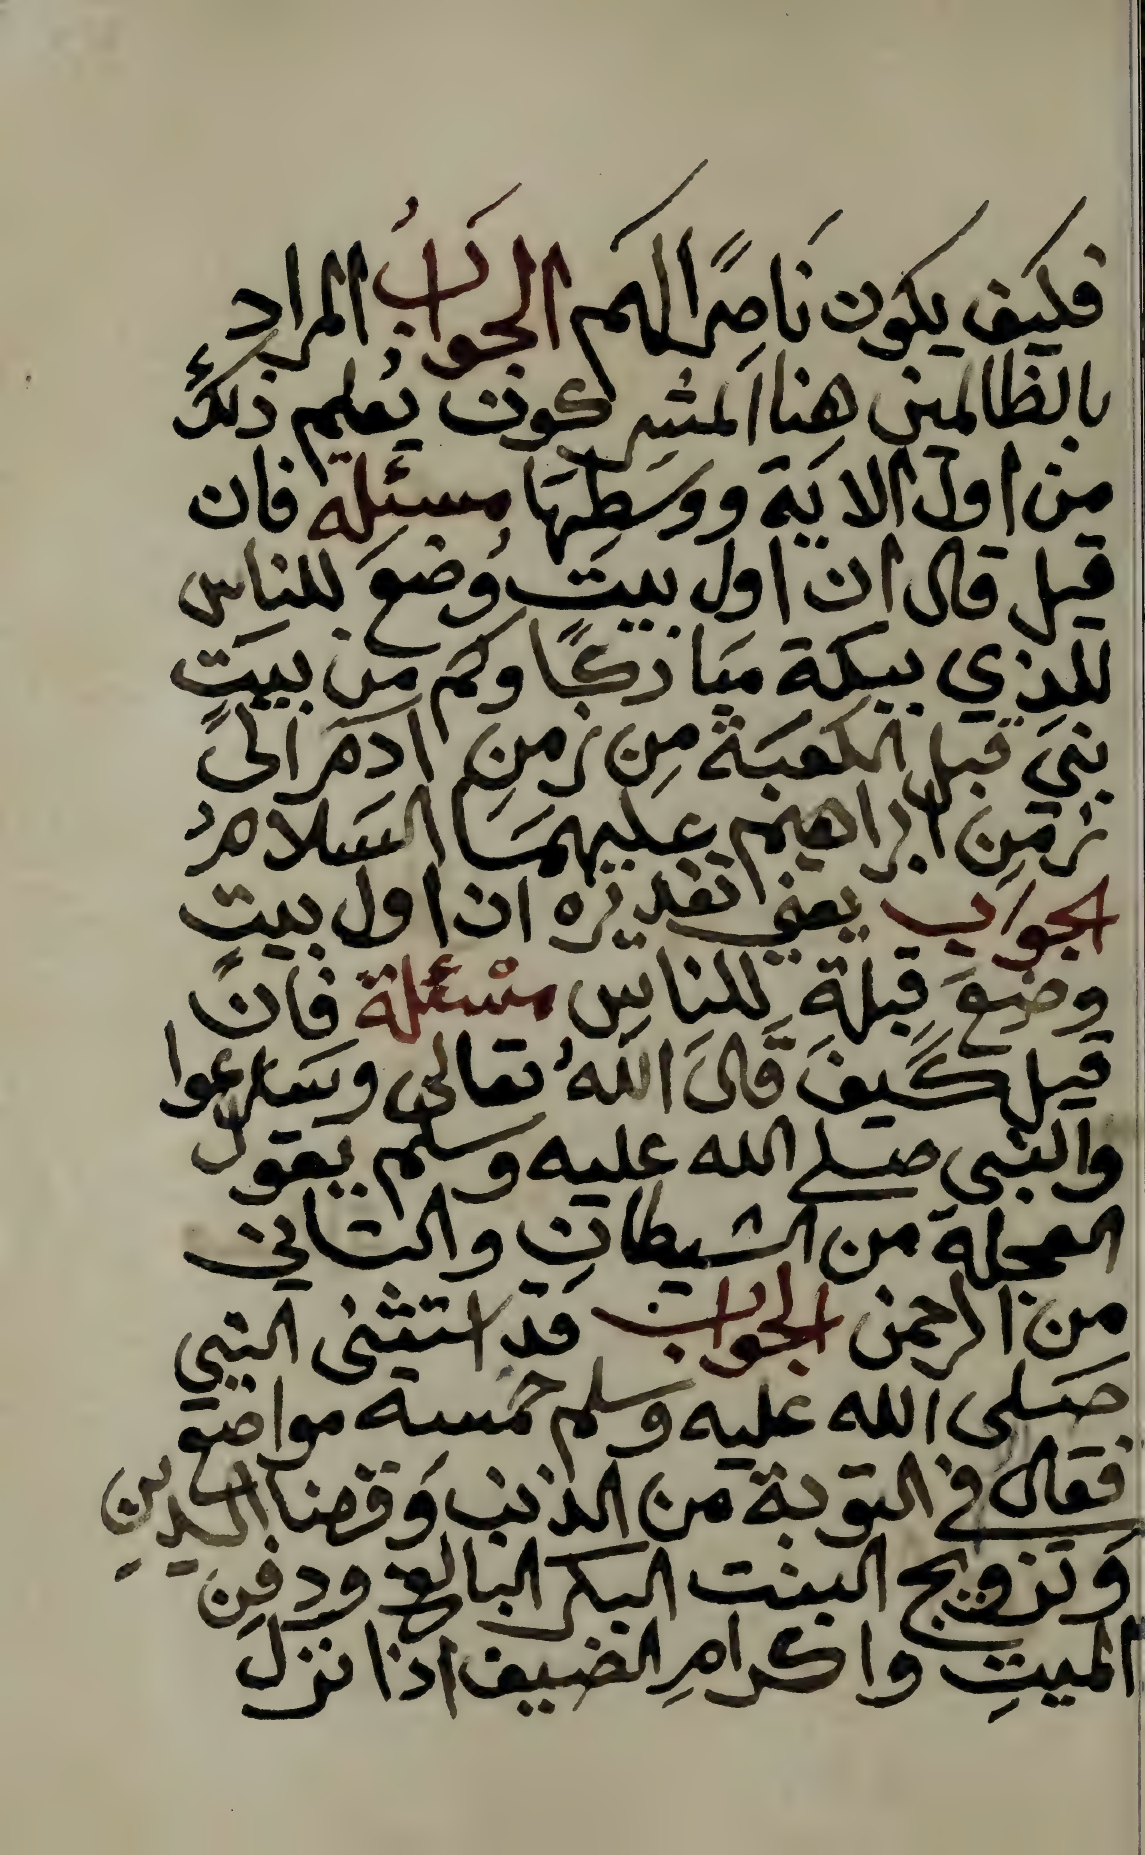 فكيف يكون نَاصِرًا لهم الجوَابُ المراد
بالظالمين هنا المشركون يُعلم ذلك
من اول الاية ووسطِهَا مسئلة فان
قيل قال ان اول بيت وُضعَ للناس
للذي ببكة مباركًا وكم من بيتٍ
بني قبل الكعبَة مِن زمنِ ادمَ الى
زمنِ ابراهيم عليهمَا السَلامُ
الجواب يعني تقديره ان اول بيتٍ
وضعَ قبلة للناسِ مسْئلة فان
قيل كيفَ قالَ اللهُ تعالى وسَارعوا
والنبي صلى الله عليه وسلم يقول
العجلة من الشيطانِ والتاني
من الرحمن الجواب قد استثنى النبي
صَلى الله عليه وسلم خمسة مواضع
فقال في التوبة من الذنب وَقضا الدينِ
وَتزويج البنت البكر البالغ ودفنِ
الميتِ واكرامِ الضيف اذا نزل